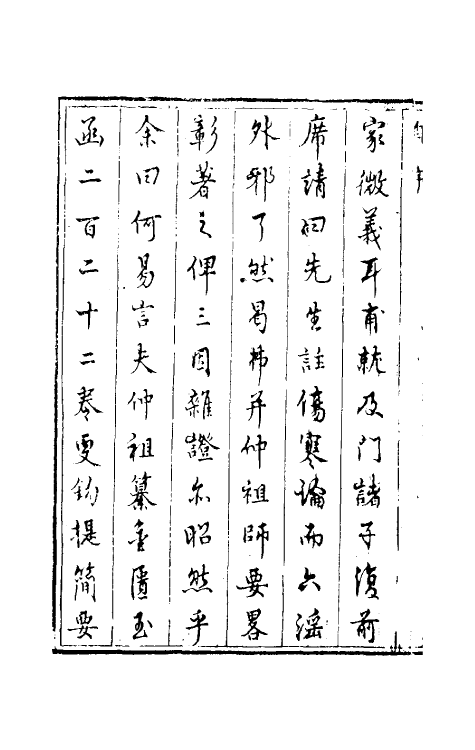 家微義耳甫就及門諸子復前
席請曰先生註傷寒論而六淫
外邪了然曷弗并仲祖師要畧
彰著之俾三因雜證亦昭然乎
余曰何易言夫仲祖纂金匱玉
函二百二十二卷更鉤提簡要